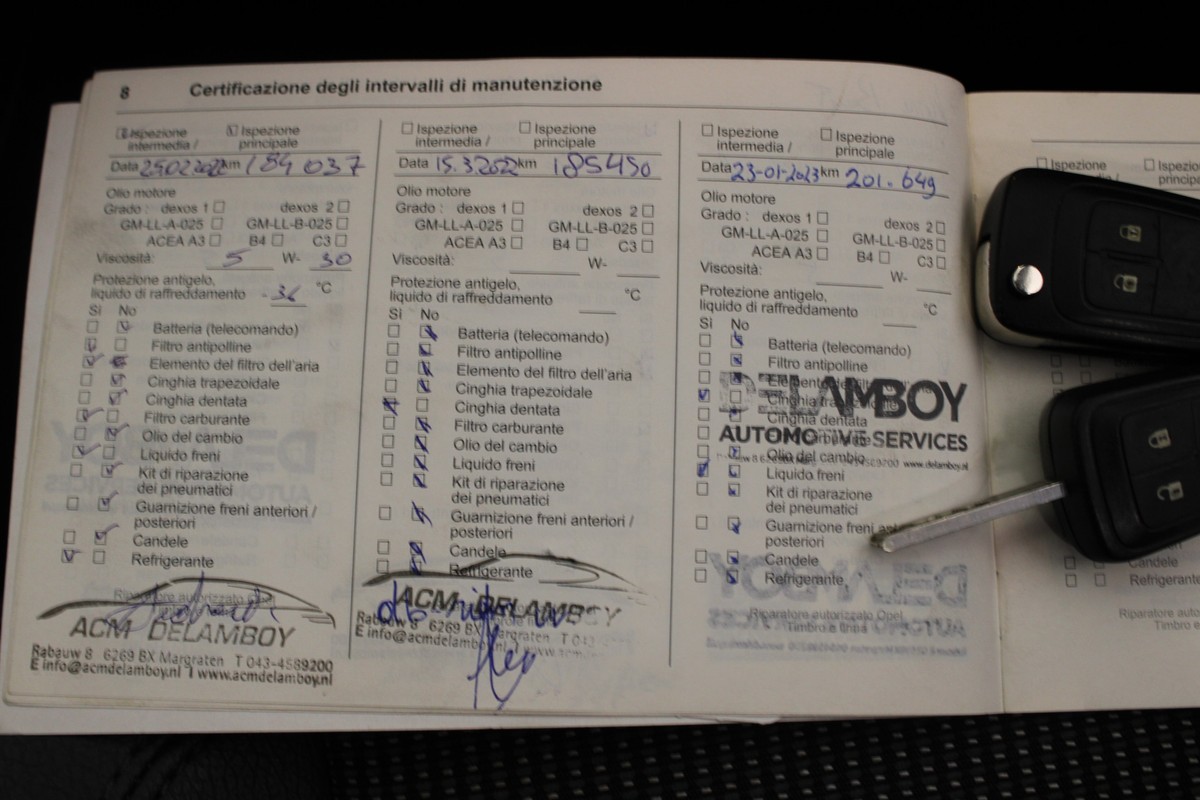 8 Certificazione degli intervalli di manutenzione
Ispezione intermedia /
Ispezione principale
Data 25022022 km 184 037
Olio motore
Grado : dexos 1 dexos 2
GM-LL-A-025 GM-LL-B-025
ACEA A3 B4 C3
Viscosità: 5 W- 30
Protezione antigelo,
liquido di raffreddamento -36 °C
Sì No
Batteria (telecomando)
Filtro antipolline
Elemento del filtro dell'aria
Cinghia trapezoidale
Cinghia dentata
Filtro carburante
Olio del cambio
Liquido freni
Kit di riparazione
dei pneumatici
Guarnizione freni anteriori /
posteriori
Candele
Refrigerante
Riparatore autorizzato
ACM DELAMBOY
Rabauw 8 6269 BX Margraten T 043-4589200
E info@acmdelamboy.nl I www.acmdelamboy.nl
Ispezione intermedia /
Ispezione principale
Data 15.3.2022 km 185450
Olio motore
Grado : dexos 1 dexos 2
GM-LL-A-025 GM-LL-B-025
ACEA A3 B4 C3
Viscosità: W-
Protezione antigelo,
liquido di raffreddamento °C
Sì No
Batteria (telecomando)
Filtro antipolline
Elemento del filtro dell'aria
Cinghia trapezoidale
Cinghia dentata
Filtro carburante
Olio del cambio
Liquido freni
Kit di riparazione
dei pneumatici
Guarnizione freni anteriori /
posteriori
Candele
Refrigerante
ACM DELAMBOY
Rabauw 8 6269 BX Margraten T 043
E info@acmdelamboy.nl I www.acm
Ispezione intermedia /
Ispezione principale
Data 23-01-2023 km 201.649
Olio motore
Grado : dexos 1 dexos 2
GM-LL-A-025 GM-LL-B-025
ACEA A3 B4 C3
Viscosità: W-
Protezione antigelo,
liquido di raffreddamento °C
Sì No
Batteria (telecomando)
Filtro antipolline
DELAMBOY
Cinghia dentata
AUTOMOTIVE SERVICES
Olio del cambio
www.delamboy.nl
Liquido freni
Kit di riparazione
dei pneumatici
Guarnizione freni
posteriori
Candele
Refrigerante
Riparatore autorizzato Opel
Timbro e firma
Ispezione
Ispezione
Candele
Refrigerante
Riparatore auto
Timbro e